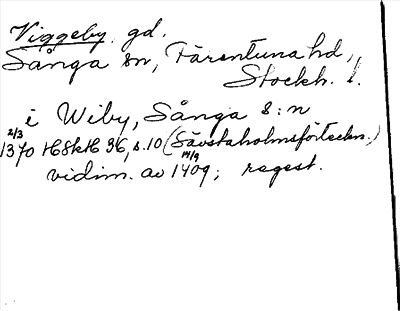 Viggeby. gd.
Sånga sn, Färentuna hd,
Stockh. l.
i Wiby, Sånga s:n
2/3 1370 HSkH 36, s.10 (Sävstaholmsförteckn.)
vidim. av 14/9 1409; regest.